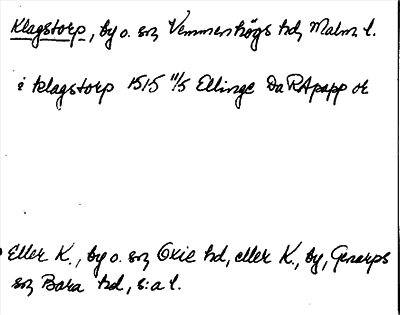 Klagstorp, by o. sn, Vemmenhögs hd, Malm. l.
i klagstorp 1515 11/5 Ellinge DaRApapp or
Eller K., by o. sn, Oxie hd, eller K., by, Genarps
sn, Bara hd, s:a l.